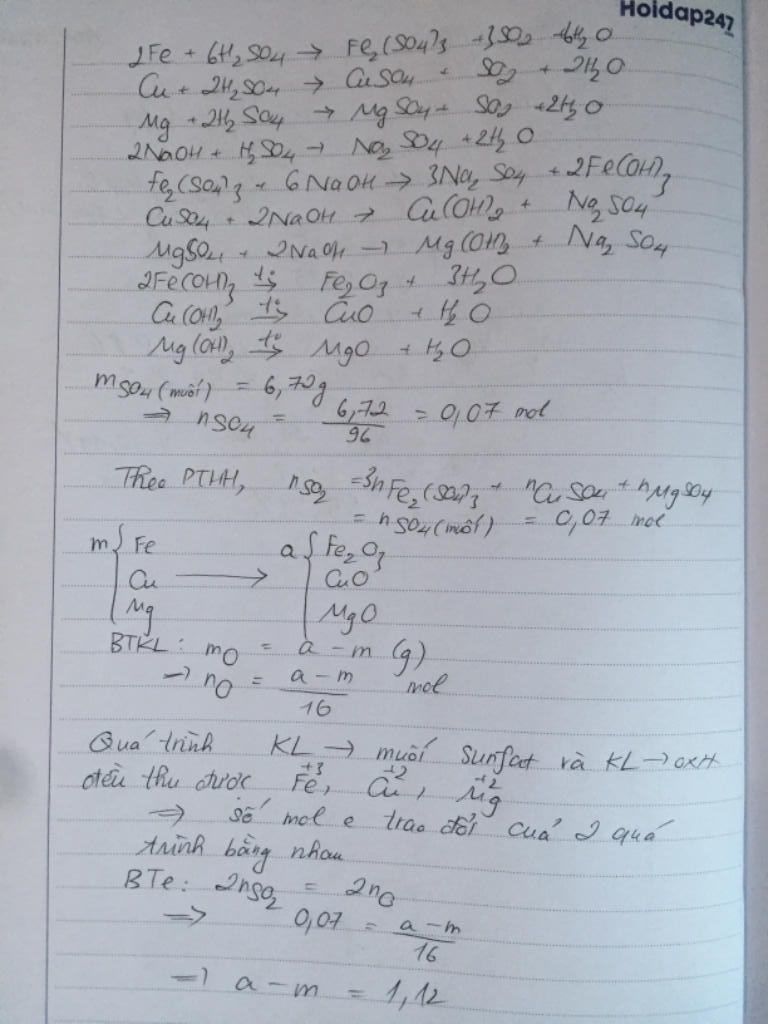 Hoidap247
2Fe + 6H₂SO₄ → Fe₂(SO₄)₃ + 3SO₂ + 6H₂O
Cu + 2H₂SO₄ → CuSO₄ + SO₂ + 2H₂O
Mg + 2H₂SO₄ → MgSO₄ + SO₂ + 2H₂O
2NaOH + H₂SO₄ → Na₂SO₄ + 2H₂O
Fe₂(SO₄)₃ + 6NaOH → 3Na₂SO₄ + 2Fe(OH)₃
CuSO₄ + 2NaOH → Cu(OH)₂ + Na₂SO₄
MgSO₄ + 2NaOH → Mg(OH)₂ + Na₂SO₄
2Fe(OH)₃ t°→ Fe₂O₃ + 3H₂O
Cu(OH)₂ t°→ CuO + H₂O
Mg(OH)₂ t°→ MgO + H₂O
m SO₄ (muối) = 6,72g
⇒ nSO₄ = 6,72/96 = 0,07 mol
Theo PTHH, nSO₂ = 3nFe₂(SO₄)₃ + nCuSO₄ + nMgSO₄
= nSO₄(muối) = 0,07 mol
m { Fe a { Fe₂O₃
Cu → CuO
Mg MgO
BTKL: mO = a - m (g)
→ nO = a - m/16 mol
Quá trình KL → muối sunfat và KL → oxit
đều thu được Fe⁺³, Cu⁺², Mg⁺²
⇒ số mol e trao đổi của 2 quá
trình bằng nhau
BTe: 2nSO₂ = 2nO
⇒ 0,07 = a - m/16
⇒ a - m = 1,12